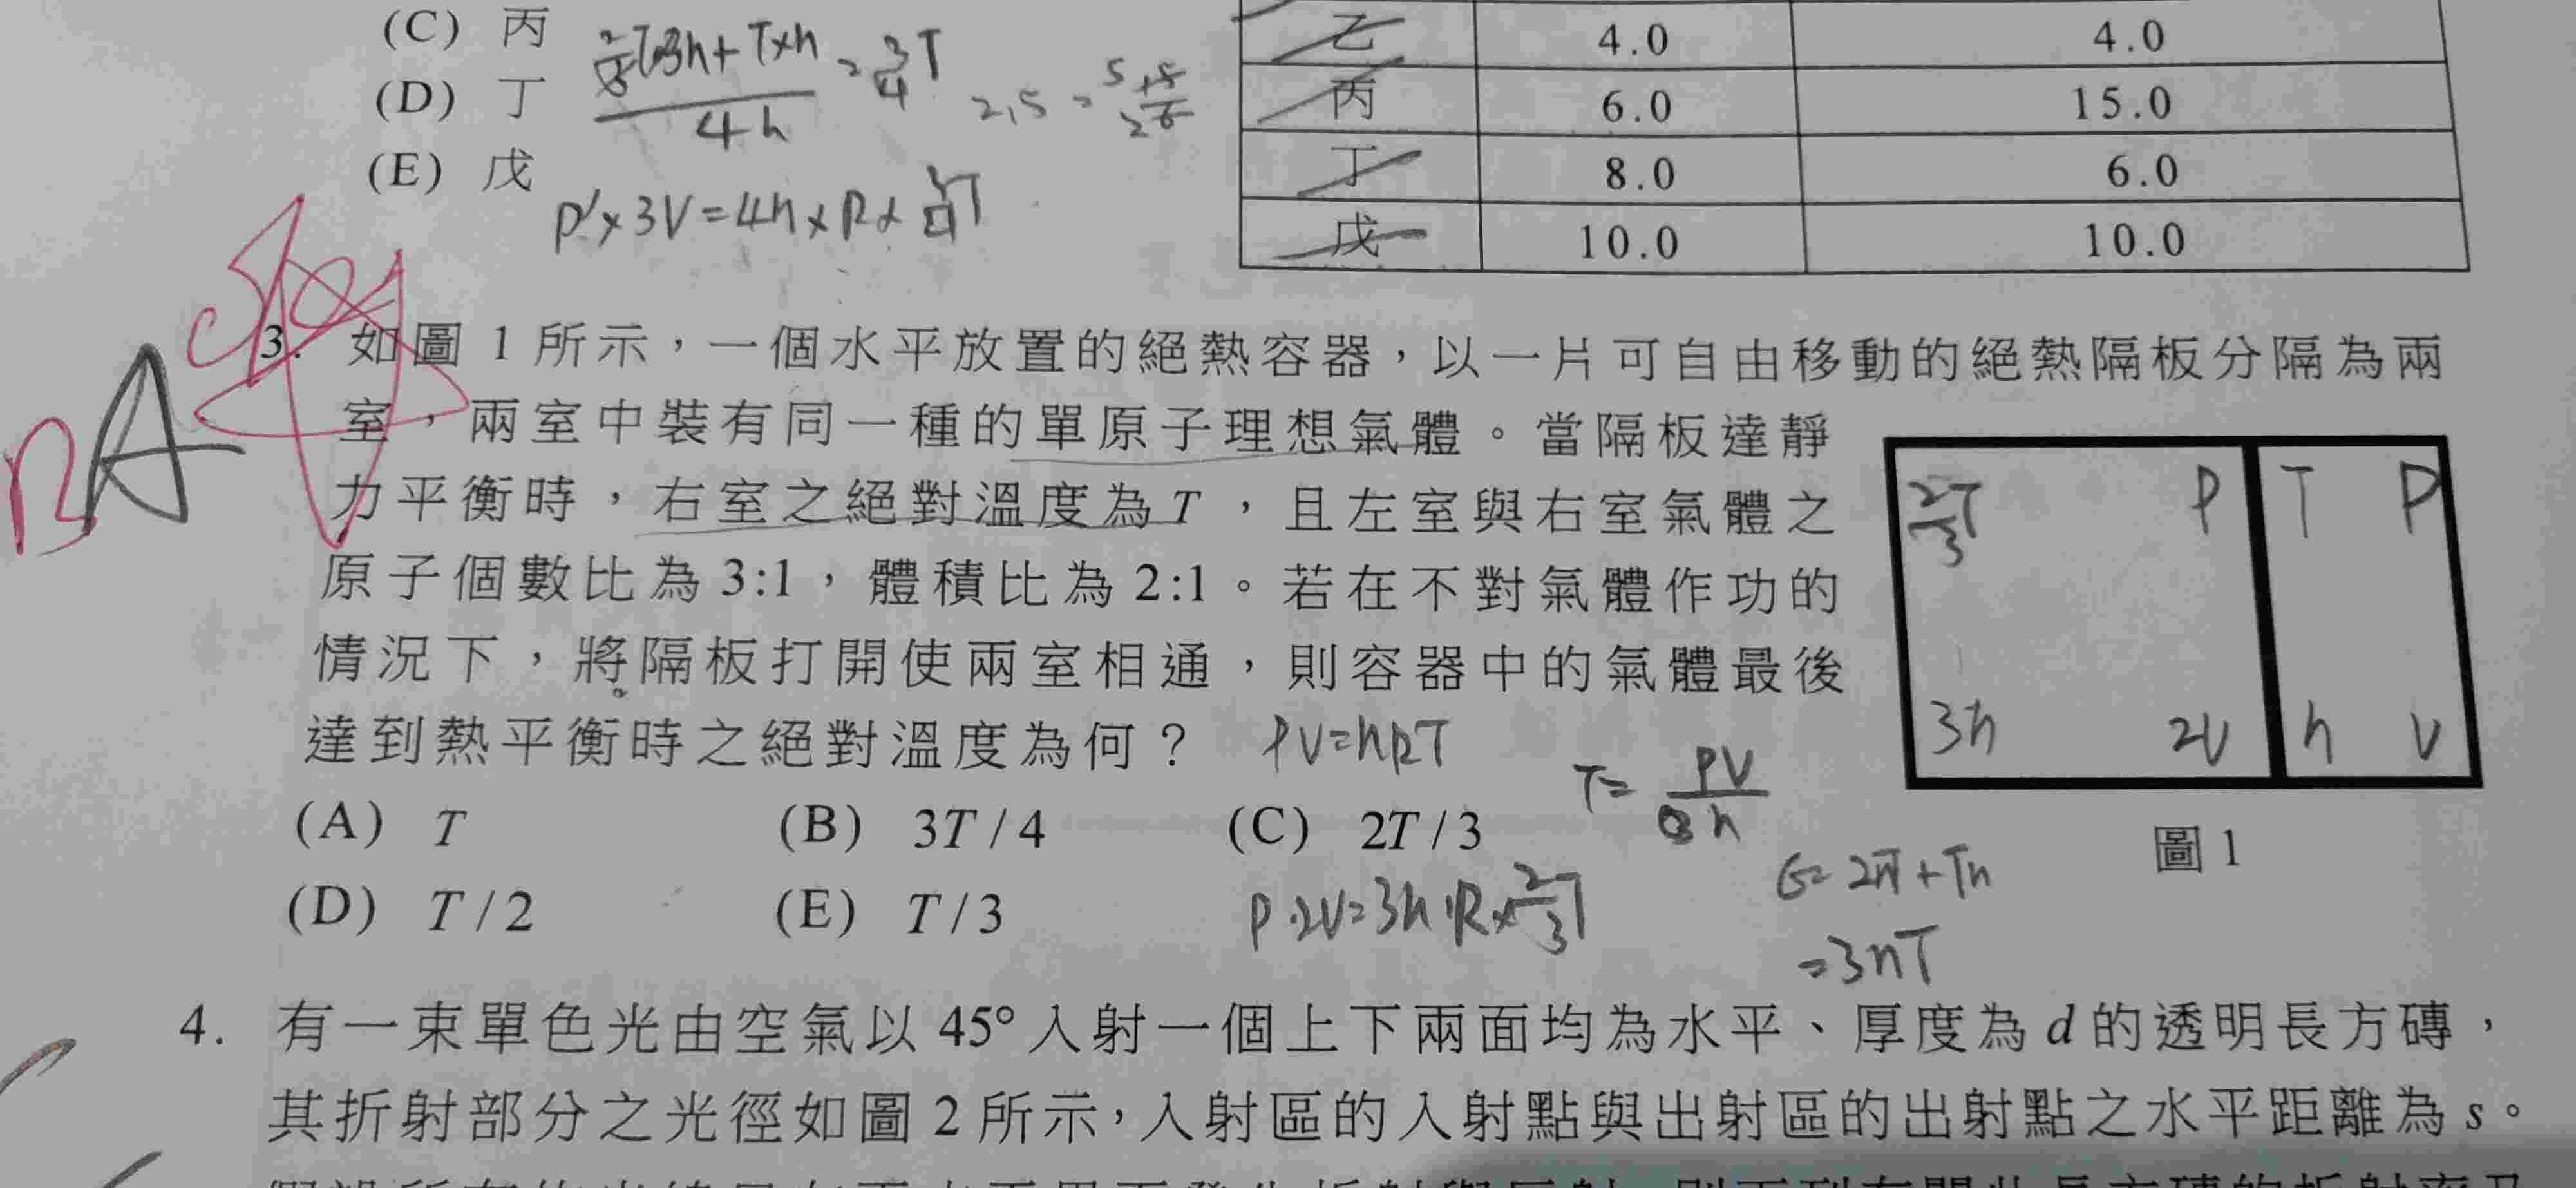 (C) 丙
乙 4.0 4.0
(D) 丁
丙 6.0 15.0
4n
(E) 戊
丁 8.0 6.0
P'×3V=4n×R×
戊 10.0 10.0
3. 如圖 1 所示，一個水平放置的絕熱容器，以一片可自由移動的絕熱隔板分隔為兩
室，兩室中裝有同一種的單原子理想氣體。當隔板達靜
力平衡時，右室之絕對溫度為 T ，且左室與右室氣體之
原子個數比為 3:1，體積比為 2:1。若在不對氣體作功的
情況下，將隔板打開使兩室相通，則容器中的氣體最後
達到熱平衡時之絕對溫度為何？ PV=nRT
A
2/3 T P T P
3n 2V n V
T= PV
(A) T (B) 3T / 4 (C) 2T / 3
圖 1
(D) T / 2 (E) T / 3 P·2V=3n·R×2/3 T
=3nT
4. 有一束單色光由空氣以 45° 入射一個上下兩面均為水平、厚度為 d 的透明長方磚，
其折射部分之光徑如圖 2 所示，入射區的入射點與出射區的出射點之水平距離為 s。